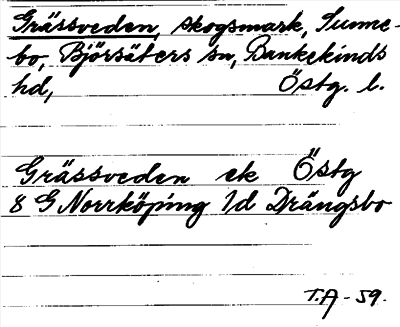 Grässveden, skogsmark, Sunne-
bo, Björsäters sn, Bankekinds
hd, Östg. l.
Grässveden ek Östg
8 G Norrköping 1d Drängsbo
T.A - 59.